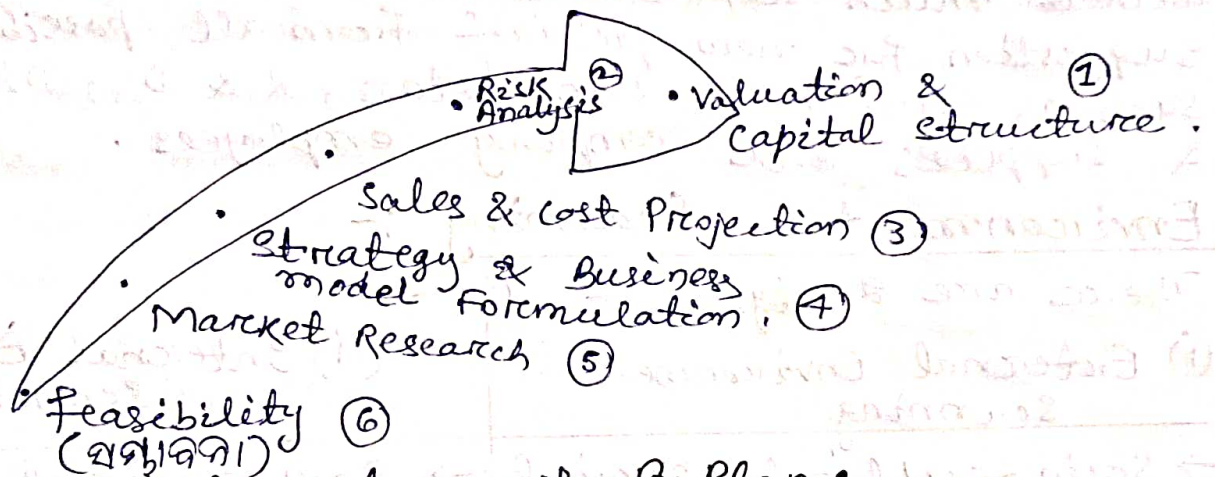 Risk ②
Analysis
• Valuation & ①
Capital Structure.
Sales & Cost Projection ③
Strategy & Business
model Formulation. ④
Market Research ⑤
Feasibility ⑥
(ସମ୍ଭାବନା)